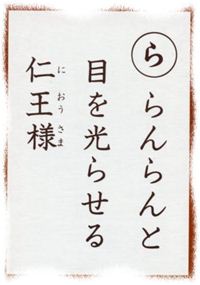 ら
らんらんと
目を光らせる
仁王様
におうさま